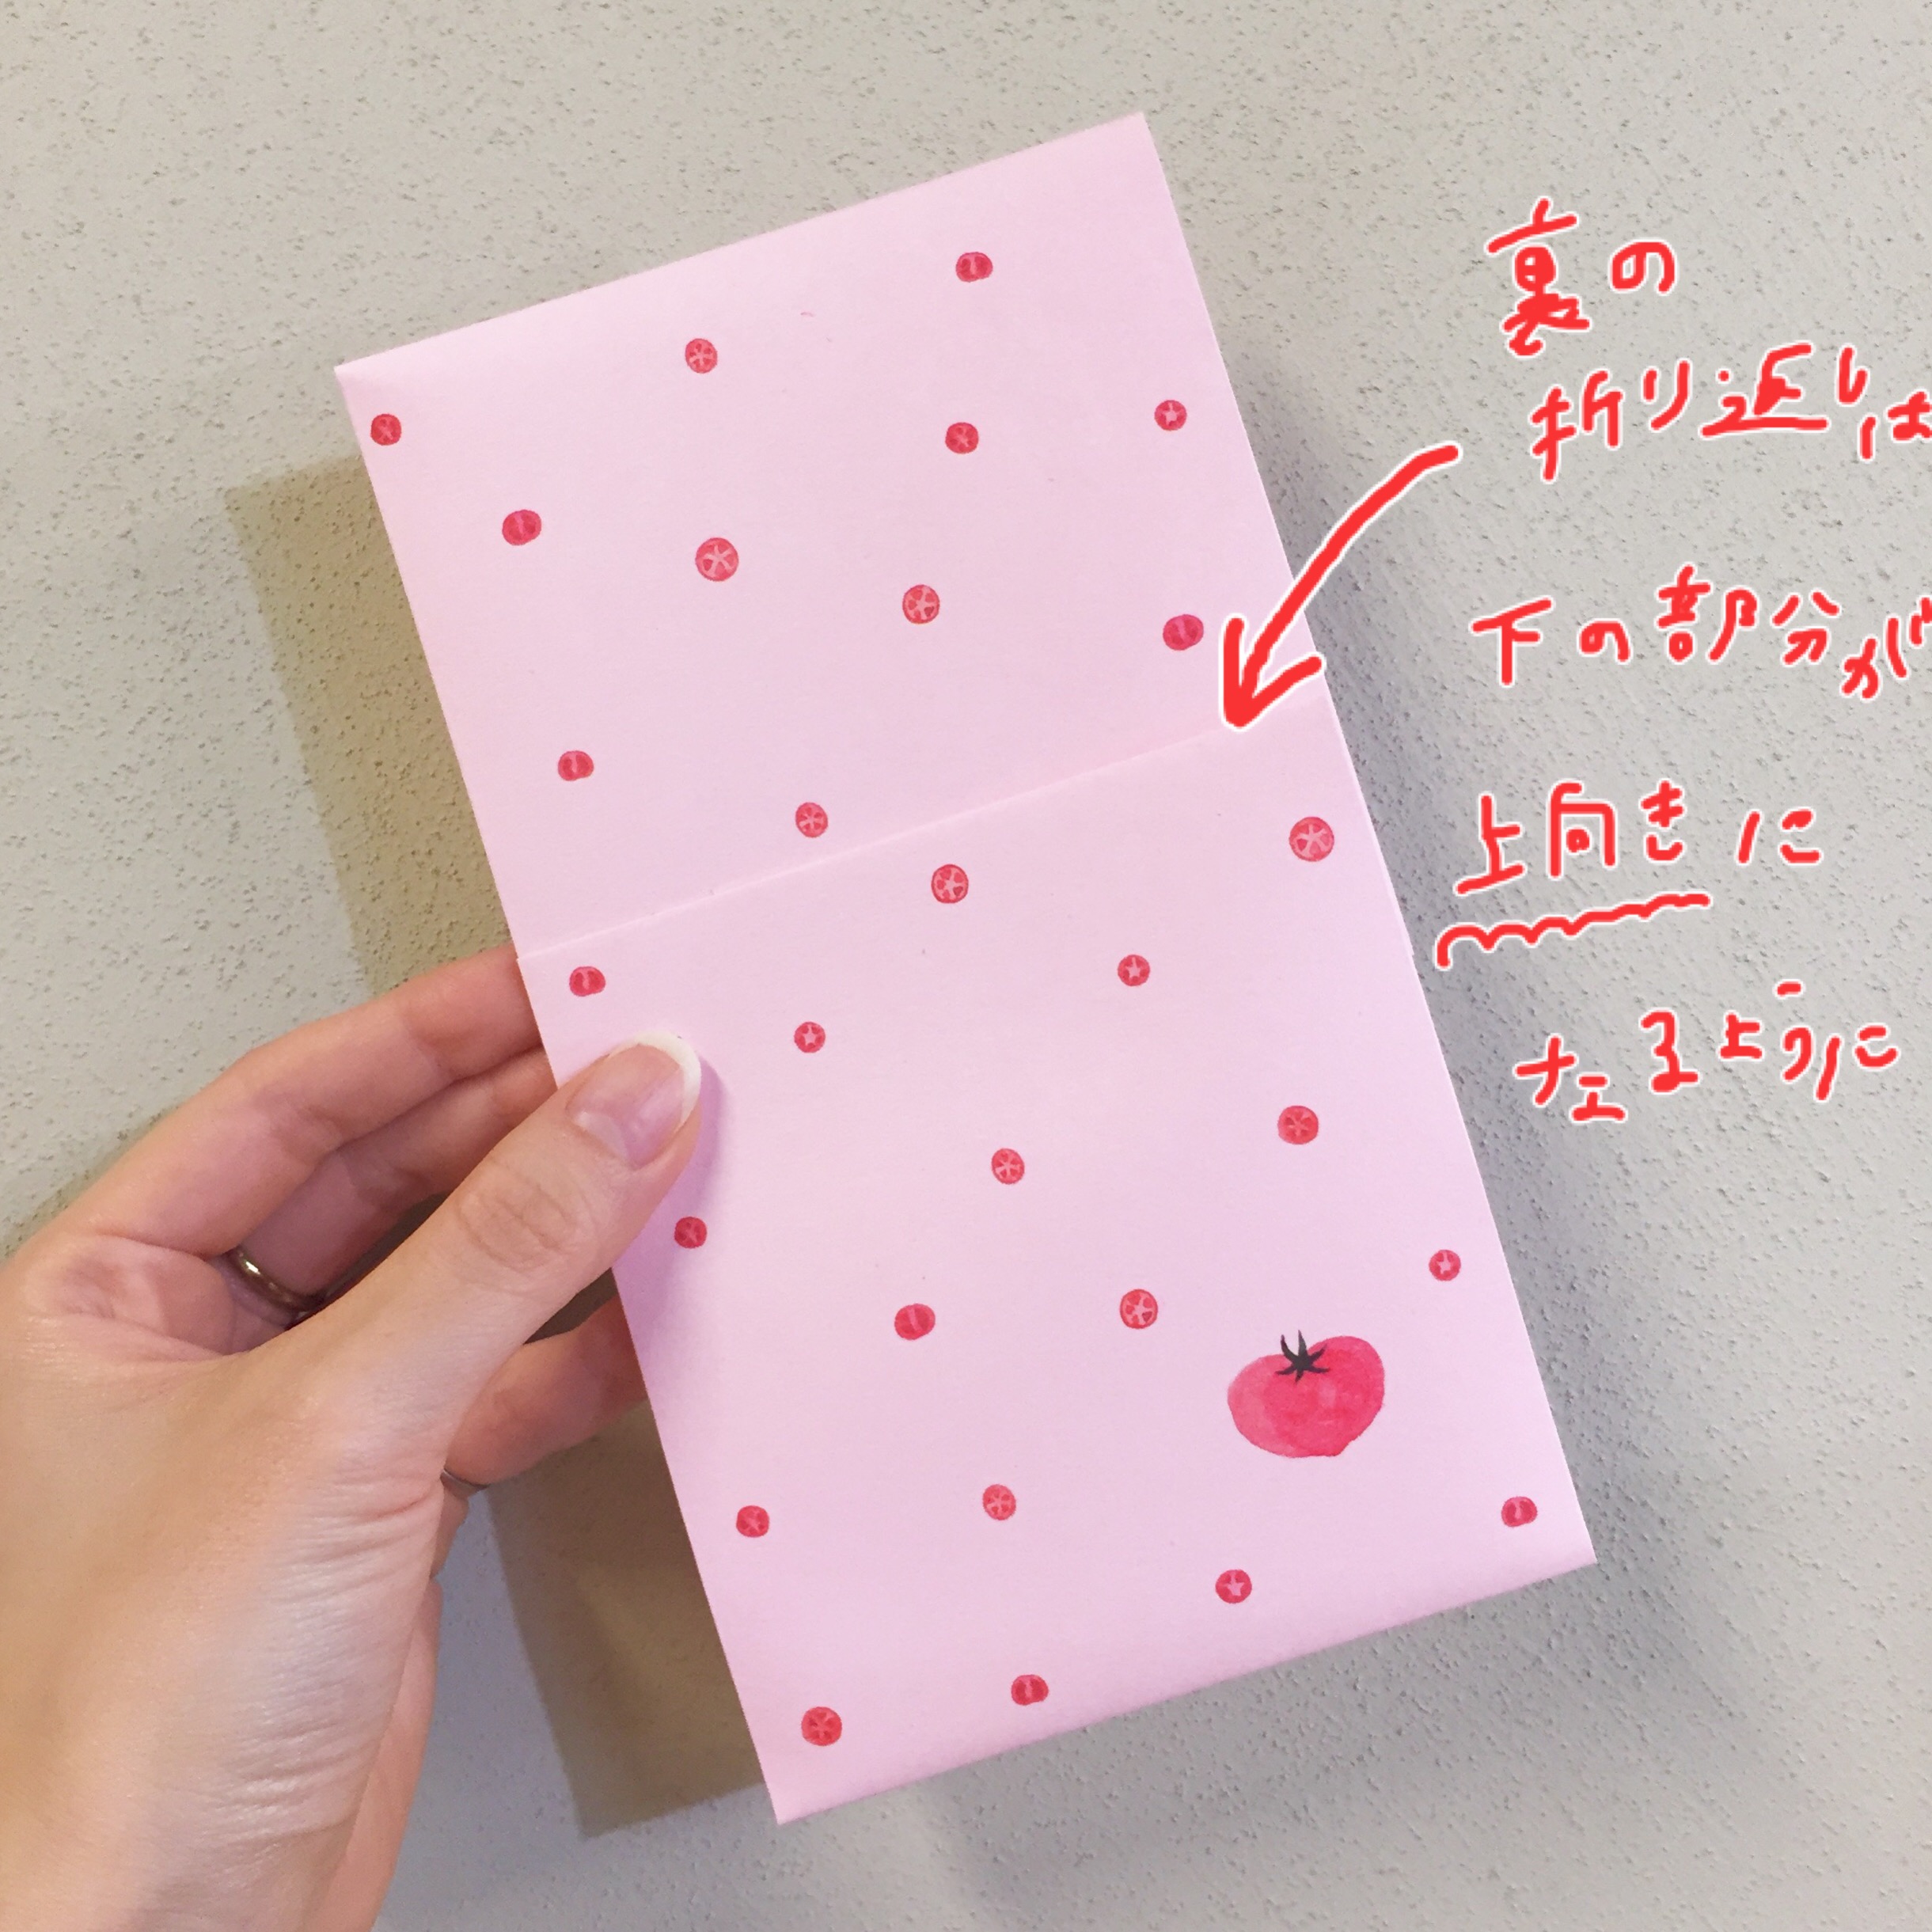 裏の
折り返しは
下の部分が
上向きに
なるように